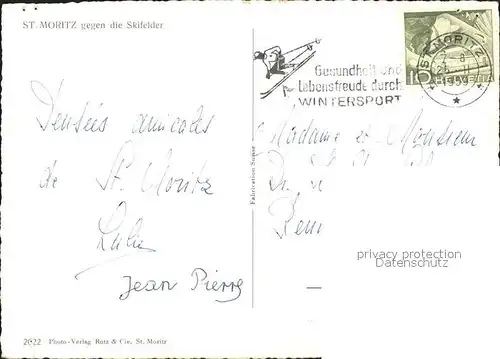 ST. MORITZ gegen die Skifelder
Gesundheit und
Lebensfreude durch
WINTERSPORT
ST. MORITZ
1959
10
HELVETIA
Pensées amicales
de St. Moritz
Jean Pierre
Madame et Monsieur
Fabrication Suisse
privacy protection
Datenschutz
2022 Photo-Verlag Rutz & Cie, St. Moritz